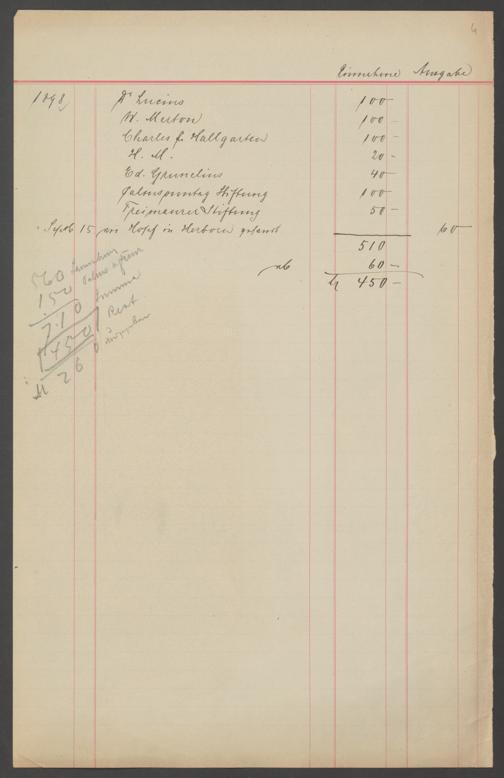 Einnahme Ausgabe
1898 Dr Lucius 100
W. Merton 100 –
Charles L. Hallgarten 100 –
H. M. 20 –
Ed. Grunelius 40 –
Palmsonntag Stiftung 100
Freimaurer Stiftung 50 –
Septb 15 an Hopf in Herborn gesandt 60
510
ab 60 –
M 450 –
560
150
710 Summa
450 Rest
M 260